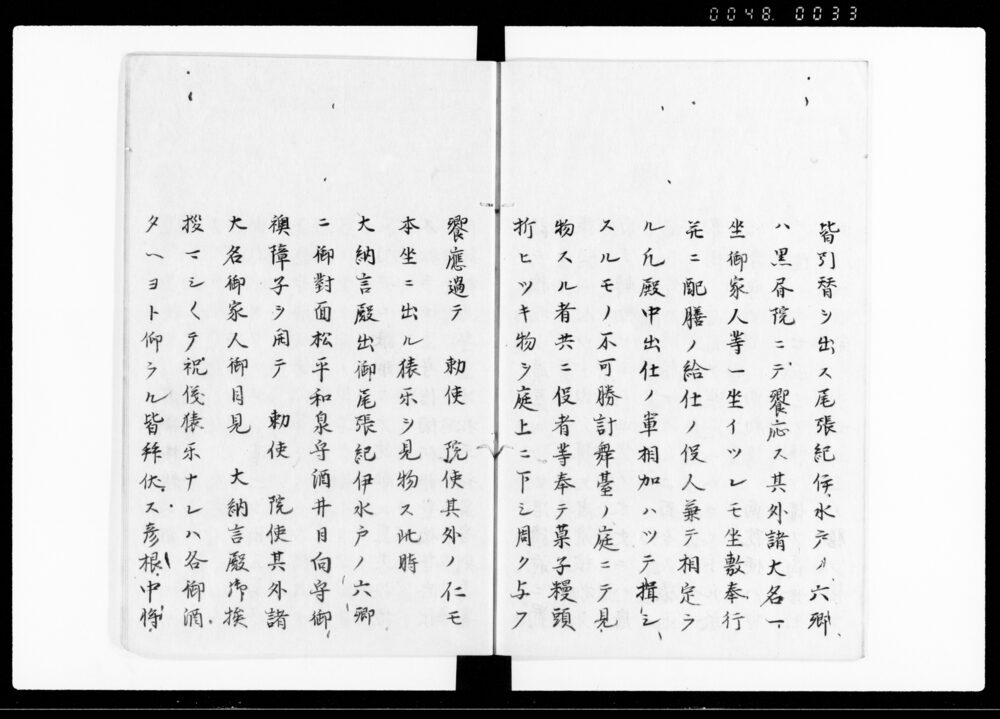 0048. 0033
皆引替シ出ス尾張紀伊水戸ノ六卿
ハ黒書院ニテ饗応ス其外諸大名一
坐御家人等一坐イツレモ坐敷奉行
并ニ配膳ノ給仕ノ役人兼テ相定ラ
ル凡殿中出仕ノ軍相加ハツテ揖シ
スルモノ不可勝計舞臺ノ庭ニテ見
物スル者共ニ役者等奉テ菓子糧頭
折ヒツキ物シ庭上ニ下シ周ク与フ
饗應過テ 勅使 院使其外ノ仁モ
本坐ニ出ル猿乐シ見物ス此時
大納言殿出御尾張紀伊水戸ノ六卿
ニ御對面松平和泉守酒井日向守御
襖障子シ開テ 勅使 院使其外諸
大名御家人御目見 大納言殿御挨
拶マシ〱テ祝儀猿乐ナレハ各御酒
タヘヨト仰ラル皆拜伏ス彦根中将